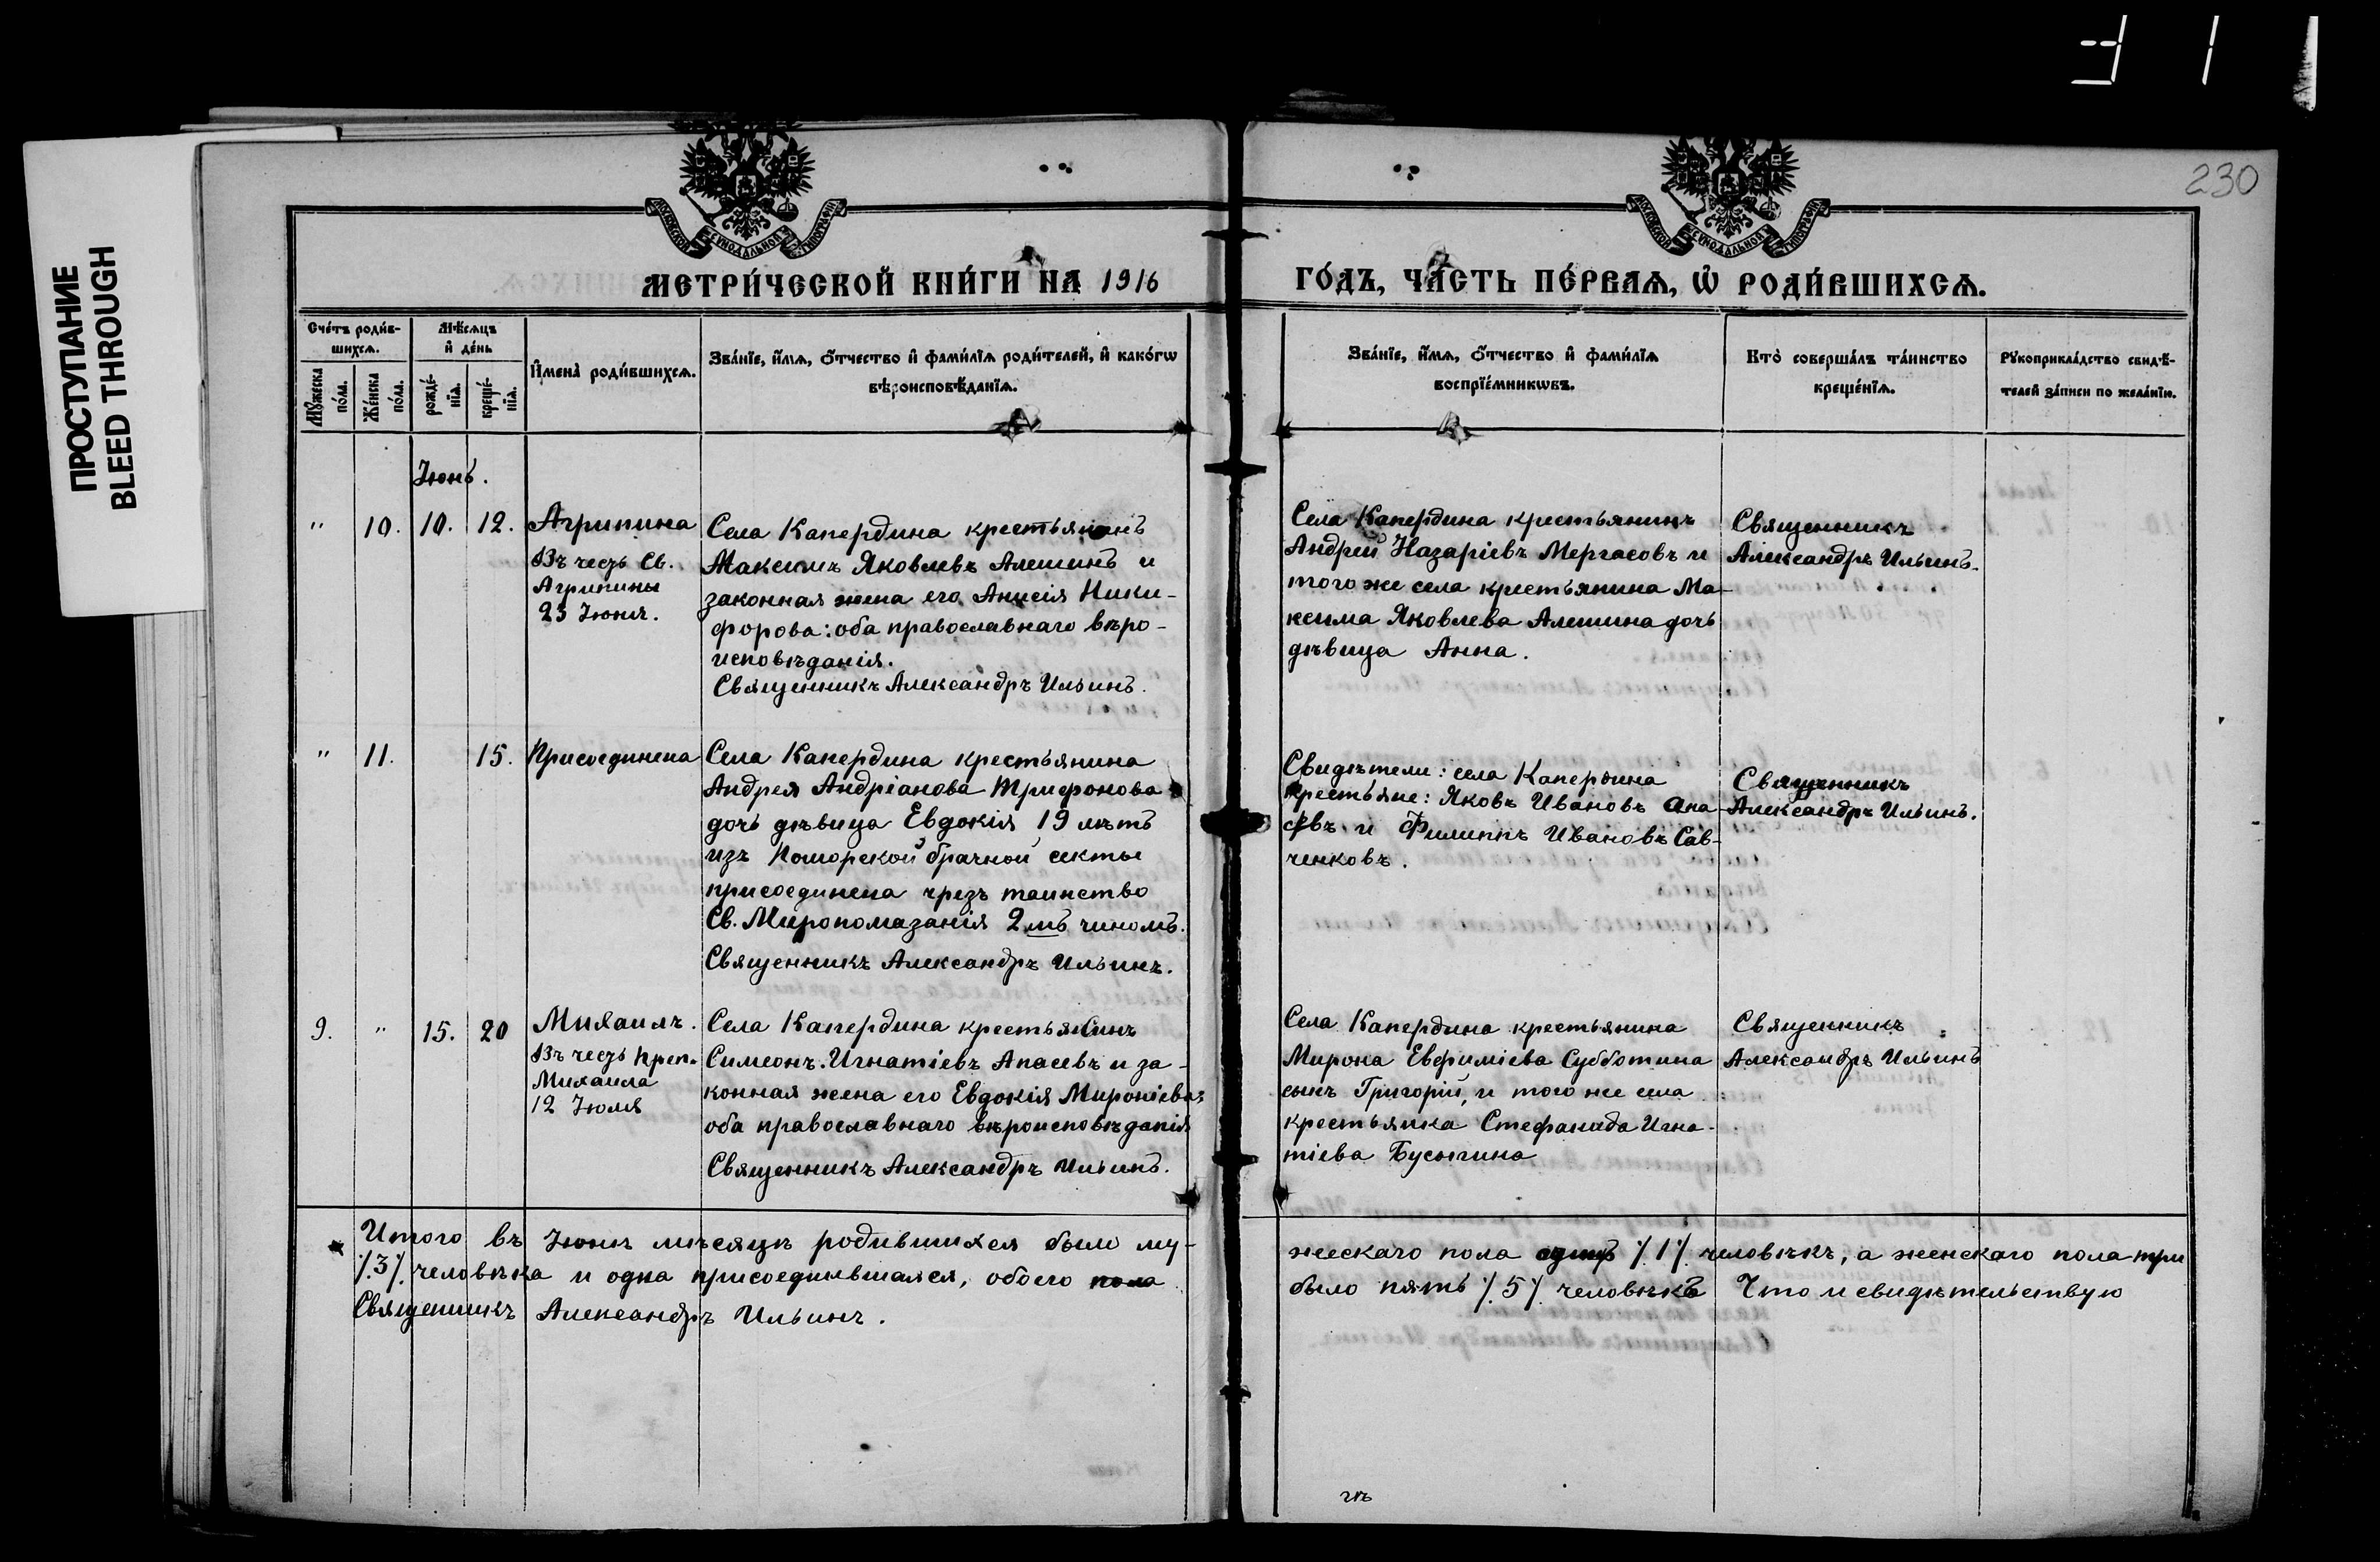 ПРОСТУПАНИЕ
BLEED THROUGH
230
МОСКОВСКОЙ СѴНОДАЛЬНОЙ ТИПОГРАФІИ
МОСКОВСКОЙ СѴНОДАЛЬНОЙ ТИПОГРАФІИ
МЕТРИ́ЧЕСКОЙ КНИ́ГИ НА 1916
ГО́ДЪ, ЧА́СТЬ ПЕ́РВАѦ, Ѡ҆ РОДИ́ВШИХСѦ.
Сче́тъ роди́в-
шихсѧ.
Мꙋ́жеска
по́ла.
Же́нска
по́ла.
Мѣ́сѧцъ
и҆ де́нь
рожде́-
нїѧ.
креще́-
нїѧ.
И҆мена̀ роди́вшихсѧ.
Зва́нїе, и҆́мѧ, ѻ҆́тчество и҆ фами́лїѧ роди́телей, и҆ како́гѡ
вѣроисповѣ́данїѧ.
Зва́нїе, и҆́мѧ, ѻ҆́тчество и҆ фами́лїѧ
воспрїе́мникѡвъ.
Кто̀ соверша́лъ та́инство
креще́нїѧ.
Рꙋкоприкла́дство свидѣ́-
телей за́писи по жела́нїю.
Іюнь.
" 10. 10. 12.
Агрипина
Въ честь Св.
Агрипины
23 Іюня.
Села Капердина крестьянинъ
Максимъ Яковлевъ Алешинъ и
законная жена его Анисія Ники-
форова: оба православнаго вѣро-
исповѣданія.
Священникъ Александръ Ильинъ.
Села Капердина крестьянинъ
Андрей Назаріевъ Мергасовъ и
того же села крестьянина Ма-
ксима Яковлева Алешина дочь
дѣвица Анна.
Священникъ
Александръ Ильинъ.
" 11. 15.
Присоединена
Села Капердина крестьянина
Андрея Андріанова Трифонова
дочь дѣвица Евдокія 19 лѣтъ
изъ Поморской брачной секты
присоединена чрезъ таинство
Св. Миропомазанія 2мъ чиномъ.
Священникъ Александръ Ильинъ.
Свидѣтели: села Капердина
крестьяне: Яковъ Ивановъ
и Филиппъ Ивановъ Сав-
ченковъ.
Священникъ
Александръ Ильинъ.
9. " 15. 20
Михаилъ.
Въ честь Преп.
Михаила
12 Іюля
Села Капердина крестьянинъ
Симеонъ Игнатіевъ Апасевъ и за-
конная жена его Евдокія Миропіева
оба православнаго вѣроисповѣданія
Священникъ Александръ Ильинъ.
Села Капердина крестьянина
Мирона Евфиміева Субботина
сынъ Григорій, и того же села
крестьянка Стефанида Игна-
тіева Бусыгина
Священникъ
Александръ Ильинъ
Итого въ Іюнѣ мѣсяцѣ родившихся было му-
жескаго пола одинъ /.1/. человѣкъ, а женскаго пола три
/.3/. человѣка и одна присоединившаяся, обоего пола
было пять /.5/. человѣкъ Что и свидѣтельствую
Священникъ Александръ Ильинъ.